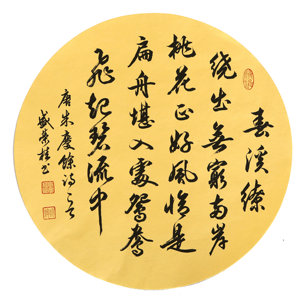 春溪繚
繞出無窮兩岸
桃花正好風恰是
扁舟堪入處鴛鴦
飛起碧流中
唐朱慶餘詩
桂书